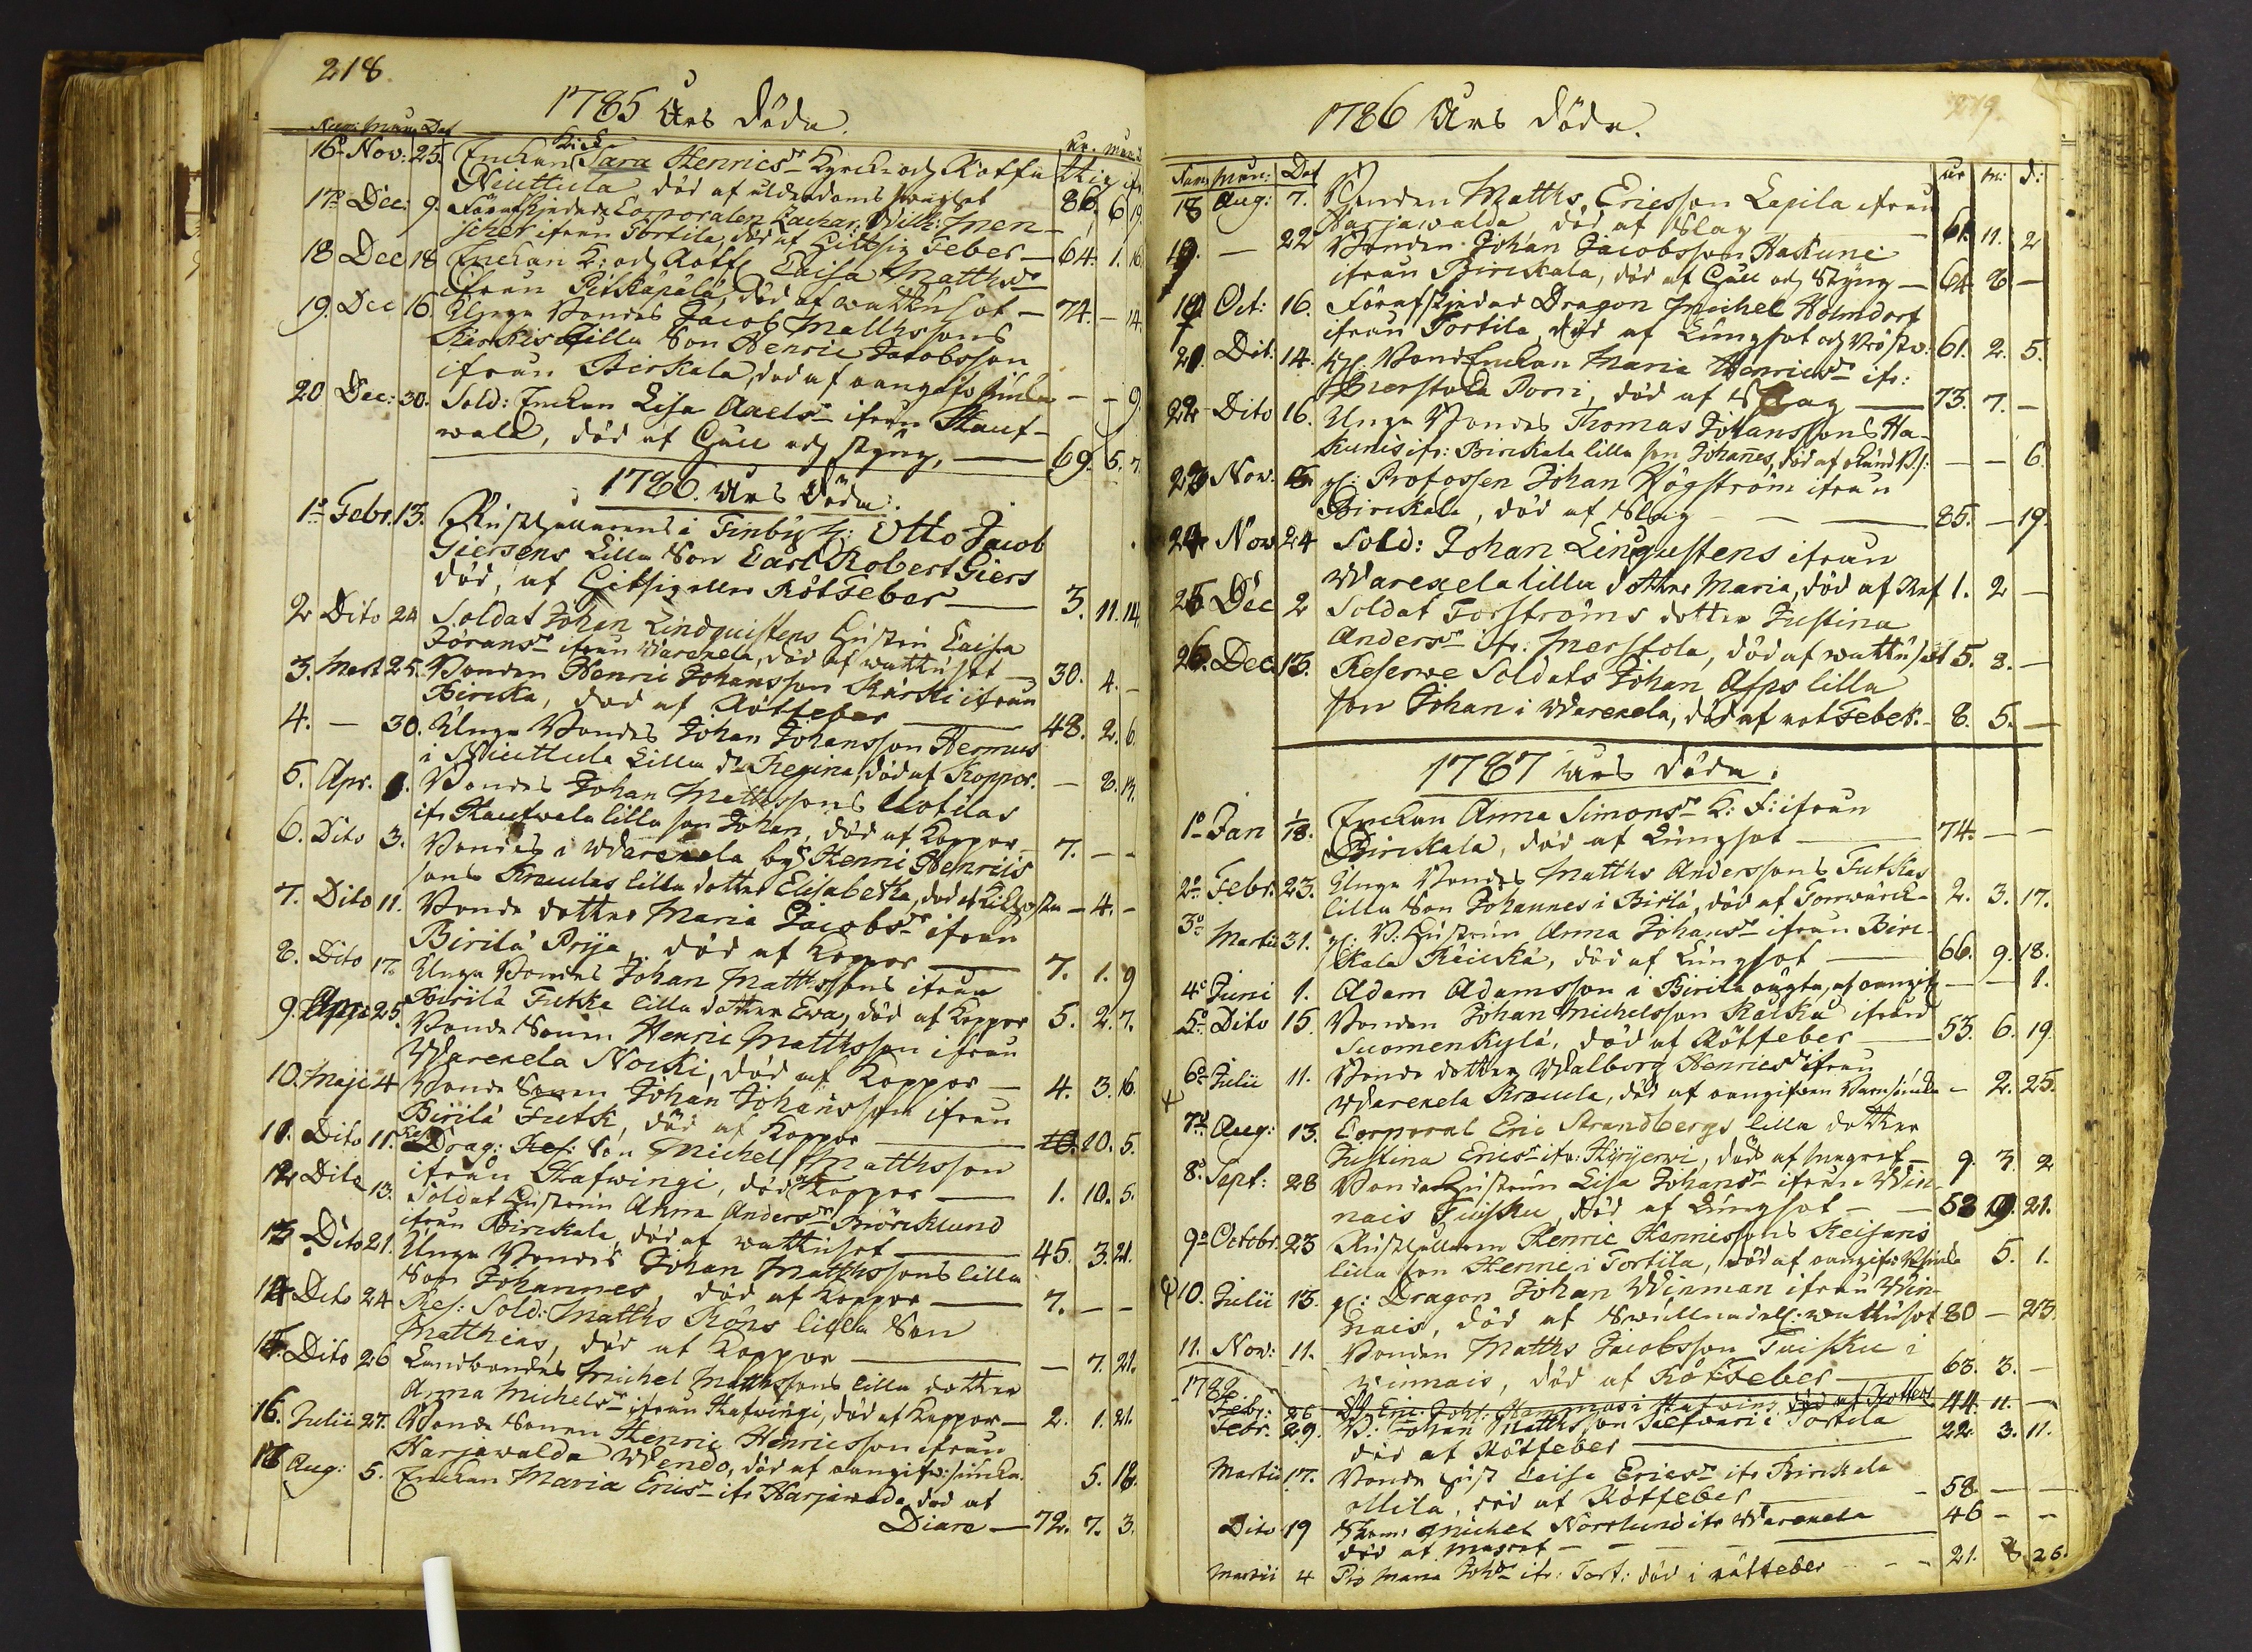 218.
1785 Års döda.
Num: Mån: Dat
År. Mån: d.
16o Nov: 25. Enkan Sara Henricsdr Kyrck: och Rotfa ttig ifr.
Niuttula död af ålderdoms svaghet 86. 6 19.
17o Dec: 9. Förafskjedade Corporalen Zachar: Wilh: Men-
scher ifrån Tortila, död af Hitsig Feber — 64. 1. 16.
18 Dec 18 Enkan K: och Rotf Caisa Matthsdr
ifrån Pitkäpälä, död af wattusot — 74. — 14.
19. Dec 16. Unga Bondes Jacob Matthssons
Kärkis lilla Son Henric Jacobsson
ifrån Birkala, död af oangifv: siuka — — 9.
20 Dec: 30. Sold: Enkan Lisa Axelsdr ifrån Hauf-
wala, död af Håll och styng, — 69. 5. 7.
1786. Års döda.
1o Febr. 13. Rusthållarens i Finby H: Otto Jacob
Giersens Lilla Son Carl Robert Giers
död, af Hitsig eller RötFeber — 3. 11. 14.
2 Dito 24 Soldat Johan Lindquistens Hustru Caisa
Göransdr ifrån Warexela, död af wattusot — 30. 4. —
3. Mart 25. Bonden Henric Johansson Kärcki ifrån
Bircka, död af Rötfeber — 48. 2. 6.
4. — 30. Unga Bondes Johan Johansson Hermus
i Niuttula Lilla dr Regina, död af Koppor. — 8. 13.
5. Apr. 1. Bondes Johan Matthssons Uotilas
ifr Haufwala lilla son Johan, död af Koppor — 7. — —
6. Dito 3. Bondes i Warexela by Henric Henrics
sons Kraulas lilla dotter Elisabetha, död af Kikhosta — 4. —
7. Dito 11. Bonde dotter Maria Jacobsdr ifrån
Birilä Prija, död af Koppor — 7. 1. 9
8. Dito 17. Unga Bondes Johan Matthssons ifrån
Birilä Futka lilla dotter Ewa, död af Koppor 5. 2. 7.
9. Apr: 25. Bonde Sonen Henric Matthsson ifrån
Warexela Nocki, död af Koppor — 4. 3. 6.
10. Maji 4 Bonde Sonen Johan Johansson ifrån
Birilä Futk, död af Koppor — 10. 10. 5.
11. Dito 11. Drag: Ref: Son Michel Matthsson
ifrån Hafwingi, död af Koppor — 1. 10. 5.
12 Dito 13. Soldat Hustrun Anna Andersdr Biörcklund
ifrån Birckala, död af wattusot — 45. 3. 21.
13 Dito 21. Unga Bondes Johan Matthssons lilla
Son Johannes, död af Koppor — 7. — —
14 Dito 24 Ref: Sold: Matths Röns lilla Son
Matthias, död af Koppor — — 7. 21.
15. Dito 26 Landbondes Michel Matthssons lilla dotter
Anna Michelsdr ifrån Hafwingi, död af Koppor — 2. 1. 21.
16. Julii 27. Bonde Sonen Henric Henricsson ifrån
Harjawalda Wendo, död af oangifw: siucka. 5. 18.
18 Aug: 5. Enckan Maria Ericsdr ifr Harjawalda död af
Diare — 72. 7. 3.
1786 Års döda.
219.
Num: Mån: Dat
år m: d:
18 Aug: 7. Bonden Matths Ericsson Lepila ifrån
Harjawalda död af Slag — 61. 11. 2
19. — 22 Bonden Johan Jacobsson Hakuni
ifrån Birckala, död af Håll och Styng — 64 8 —
19. Oct: 16. Förafskjedad Dragon Michel Holmdorf
ifrån Tortila, död af Lungsot och bröstw: 61. 2. 5.
21. Dit. 14. gl: BondEnckan Maria Henricsdr ifr:
Merstola Porri, död af Slag — 73. 7. —
22 Dito 16. Unga Bondes Thomas Johanssons Ha-
kunis ifr: Birckala lilla son Johanes, död af okänd B.s: — — 6.
23 Nov. gl: Profossen Johan Högström ifrån
Birckala, död af Slag — 85. — 19.
24 Nov 24 Sold: Johan Linqustens ifrån
Warexela lilla dotter Maria, död af Ref 1. 2 —
25 Dec 2 Soldat Forströms dotter Justina
Andersdr ifr: Merstola, död af wattusot 5. 8. —
26. Dec 13. Reserwe Soldats Johan Asps lilla
son Johan i Warexela, död af rötFeber. — 8. 5. —
1787 Års döda.
1o Jan 1/18. Enckan Anna Simonsdr K: F: ifrån
Birckala, död af Lungsot — 74. — —
2o Febr. 23. Unga Bondes Matths Anderssons Futkas
lilla Son Johannes i Birilä, död af Torrwärck — 2. 3. 17.
3o Martii 31. gl: B: Hustrun Anna Johansdr ifrån Birc-
kala Räicka, död af Lungsot — 66. 9. 18.
4o Juni 1. Adam Adamsson i Birila ougta, af oangif — — 1.
5o Dito 15. Bonden Johan Michelsson Kalcku ifrån
Suomenkylä, död af Rötfeber — 53. 6. 19.
6o Julii 11. Bonde dotter Walborg Henricsdr ifrån
Warexela Kraula, död af oangifven Barnsiucka — 2. 25.
7o Aug: 13. Corporal Eric Strandbergs lilla dotter
Justina Ericsdr ifr: Hijrjerwi, död af magref — 9. 3. 2
8o Sept: 28 Bonde Hustrun Lisa Johansdr ifrån Win-
nais Tuisku, död af Lungsot — — 58 9. 21.
9o Octobr. 23 Rusthållaren Henric Hennicssons Keisaris
lilla son Henric i Tortila, död af oangifv: B.siuka 5. 1.
10. Julii 13. gl: Dragon Johan Winman ifrån Win-
nais, död af Swullnadell: wattusot 80 — 23.
11. Nov: 11. Bonden Matths Jacobsson Tuisku i
Winnais, död af Rötfeber — 63. 3. —
1788
Febr: 26 Eric: Joh: Hannus i Hafwing död af Rotfeb 44. 11. —
Febr. 29. B: Johan Matthsson Talfwari i Tortila
död af Rötfeber — 22 3. 11.
Martii 17. Bonde Hust Caisa Ericsdr ifr Birckala
Ollila, död af Rötfeber — 58 — —
Dito 19 Michel Norrlund ifr Warexela
död af Magref — 46 — —
Martii 4 Pig Maria Johdr ifr: Tort: död i rötfeber — — 21. 8 26.